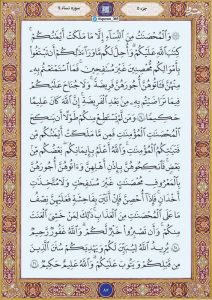 جزء ۵
سوره نساء ۴
وَٱلْمُحْصَنَٰتُ مِنَ ٱلنِّسَآءِ إِلَّا مَا مَلَكَتْ أَيْمَٰنُكُمْ
كِتَٰبَ ٱللَّهِ عَلَيْكُمْ وَأُحِلَّ لَكُم مَّا وَرَآءَ ذَٰلِكُمْ أَن تَبْتَغُوا۟
بِأَمْوَٰلِكُم مُّحْصِنِينَ غَيْرَ مُسَٰفِحِينَ فَمَا ٱسْتَمْتَعْتُم بِهِۦ
مِنْهُنَّ فَـَٔاتُوهُنَّ أُجُورَهُنَّ فَرِيضَةً وَلَا جُنَاحَ عَلَيْكُمْ
فِيمَا تَرَٰضَيْتُم بِهِۦ مِنۢ بَعْدِ ٱلْفَرِيضَةِ إِنَّ ٱللَّهَ كَانَ عَلِيمًا
حَكِيمًا ۲۴ وَمَن لَّمْ يَسْتَطِعْ مِنكُمْ طَوْلًا أَن يَنكِحَ
ٱلْمُحْصَنَٰتِ ٱلْمُؤْمِنَٰتِ فَمِن مَّا مَلَكَتْ أَيْمَٰنُكُم مِّن
فَتَيَٰتِكُمُ ٱلْمُؤْمِنَٰتِ وَٱللَّهُ أَعْلَمُ بِإِيمَٰنِكُم بَعْضُكُم مِّنۢ
بَعْضٍ فَٱنكِحُوهُنَّ بِإِذْنِ أَهْلِهِنَّ وَءَاتُوهُنَّ أُجُورَهُنَّ
بِٱلْمَعْرُوفِ مُحْصَنَٰتٍ غَيْرَ مُسَٰفِحَٰتٍ وَلَا مُتَّخِذَٰتِ
أَخْدَانٍ فَإِذَآ أُحْصِنَّ فَإِنْ أَتَيْنَ بِفَٰحِشَةٍ فَعَلَيْهِنَّ نِصْفُ
مَا عَلَى ٱلْمُحْصَنَٰتِ مِنَ ٱلْعَذَابِ ذَٰلِكَ لِمَنْ خَشِيَ ٱلْعَنَتَ
مِنكُمْ وَأَن تَصْبِرُوا۟ خَيْرٌ لَّكُمْ وَٱللَّهُ غَفُورٌ رَّحِيمٌ
۲۵ يُرِيدُ ٱللَّهُ لِيُبَيِّنَ لَكُمْ وَيَهْدِيَكُمْ سُنَنَ ٱلَّذِينَ
مِن قَبْلِكُمْ وَيَتُوبَ عَلَيْكُمْ وَٱللَّهُ عَلِيمٌ حَكِيمٌ ۲۶
۸۲